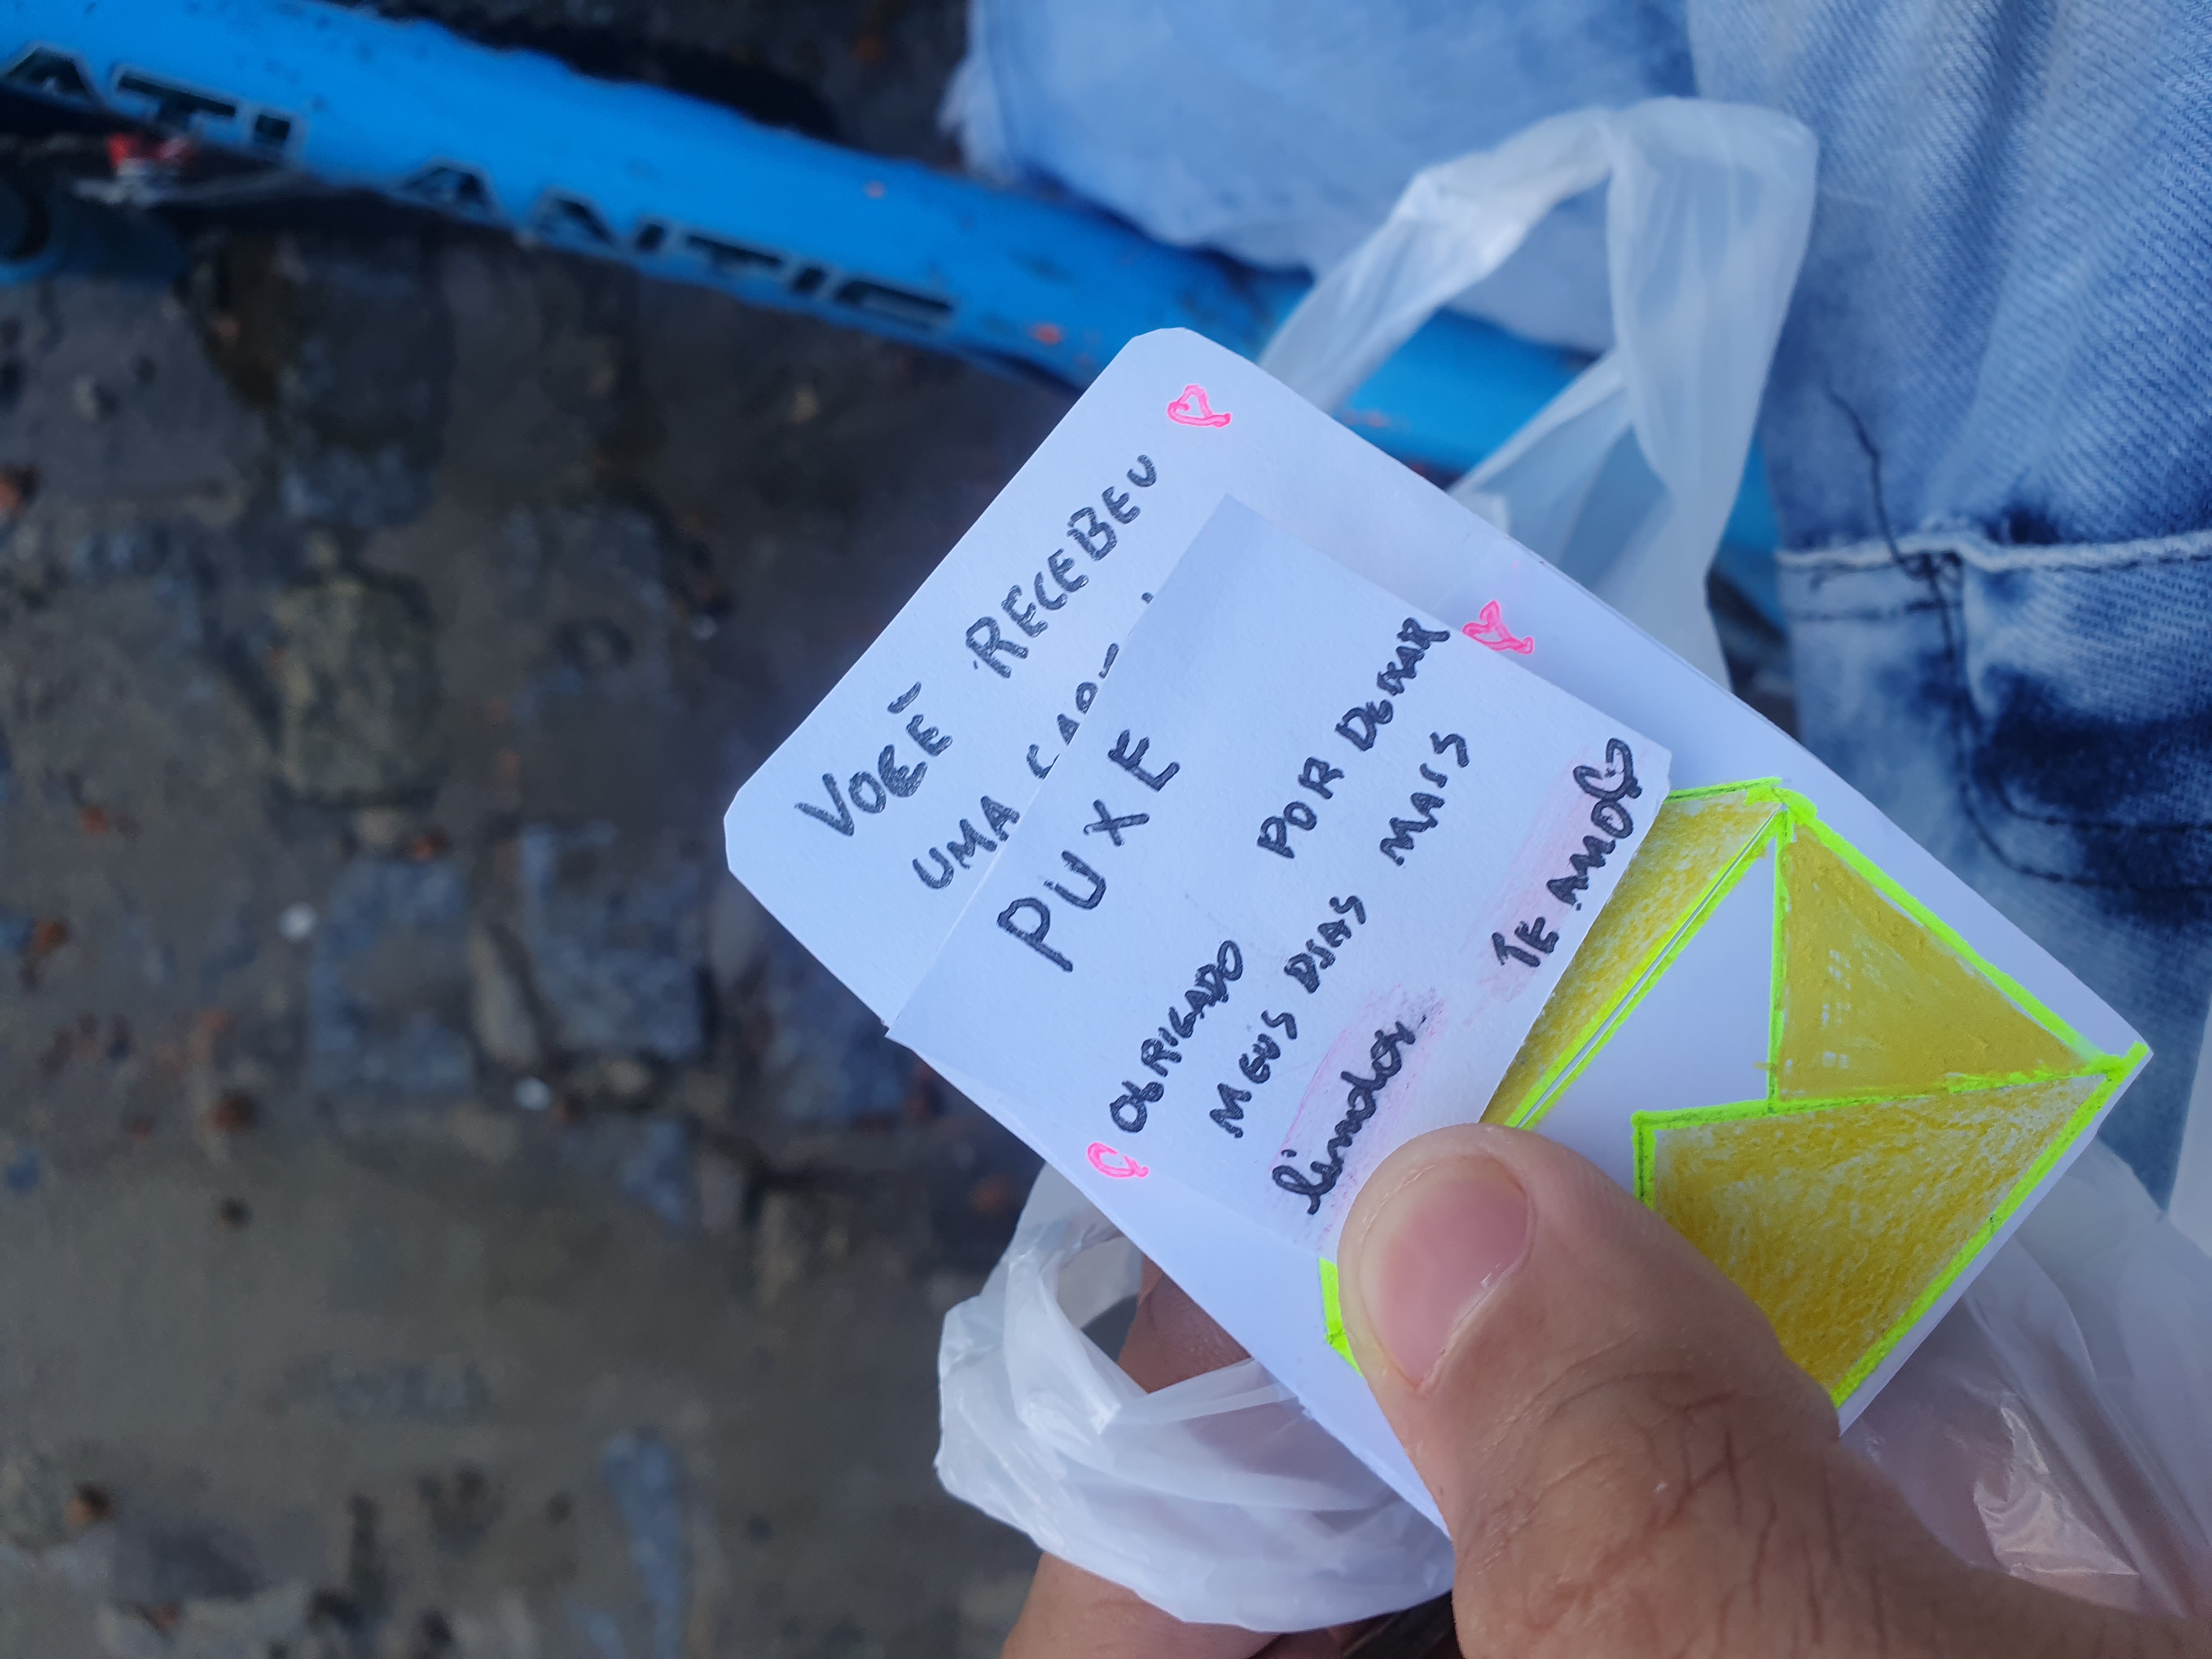 VOCÊ RECEBEU
UMA
PUXE
OBRIGADO POR DEIXAR
MEUS DIAS MAIS
lindos.
TE AMO